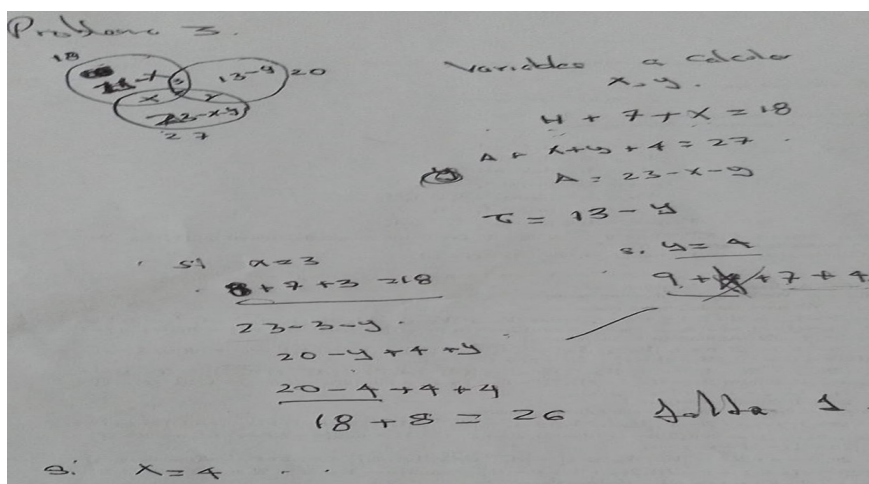 Problema 3.
18
11-x 3 13-y 20
x y
23-x-y
27
Variables a calcular
x, y.
H + 7 + x = 18
A + x+y + 4 = 27
A = 23-x-y
T = 13-y
si x=3
8+7+3=18
23-3-y
20-y+4+y
20-4+4+4
18+8=26
s. y=4
9+7+4
falta 1
si x=4 . .